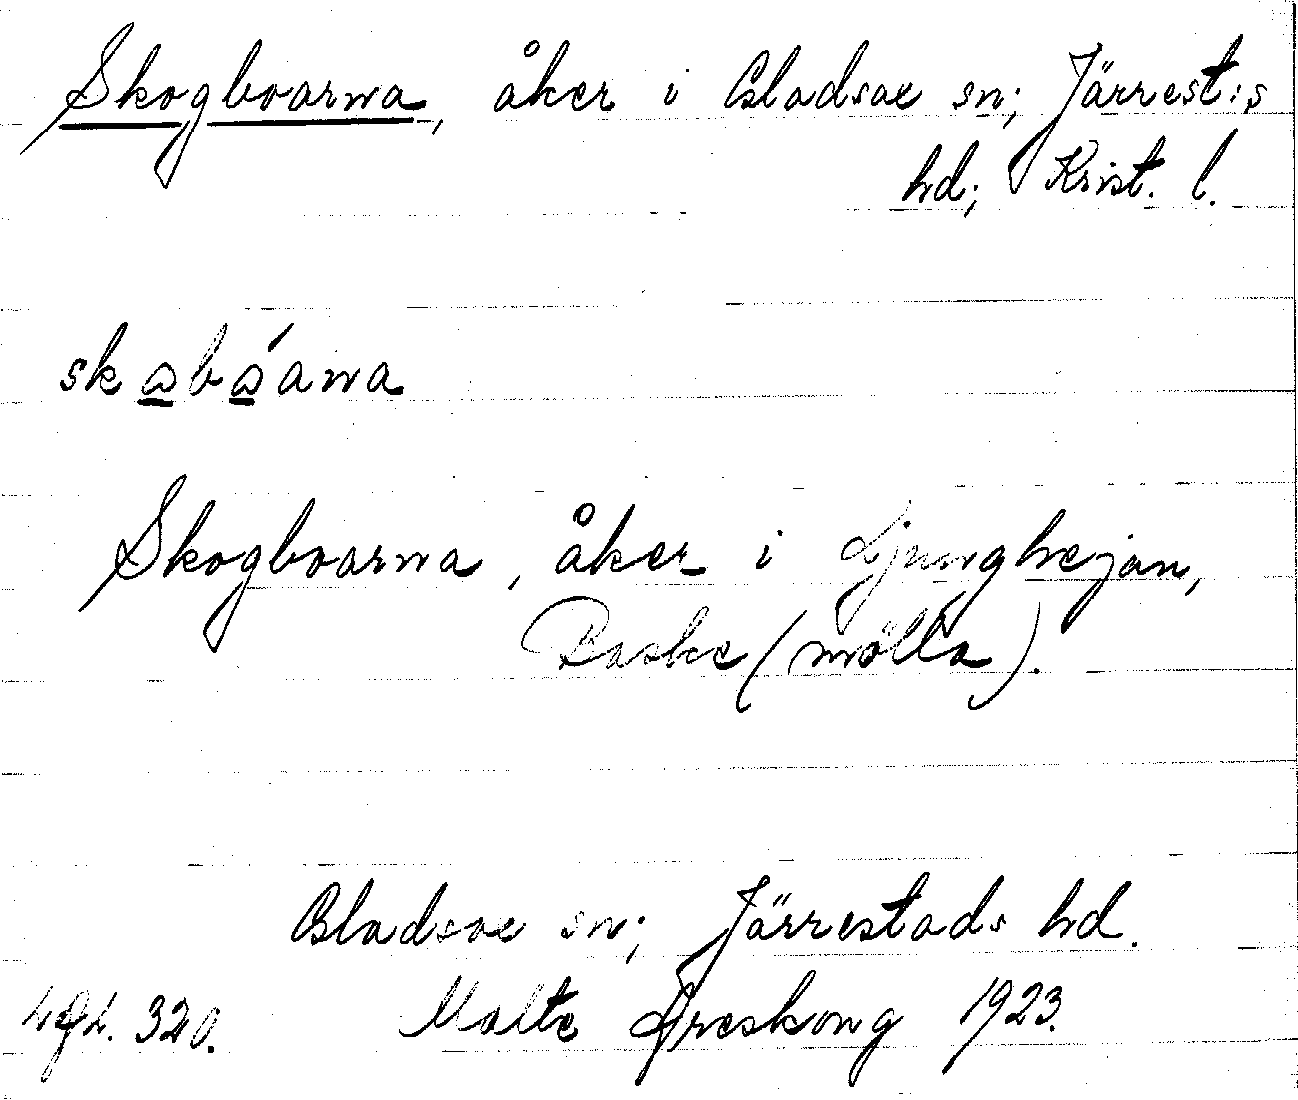 Skogboarna, åker i Gladsax sn; Järrest:s
hd; Krist. l.
skɷbɷ́ana
Skogboarna, åker i Ljunghejan,
Baske(mölla).
Gladsax sn; Järrestads hd.
320. Malte Areskoug 1923.